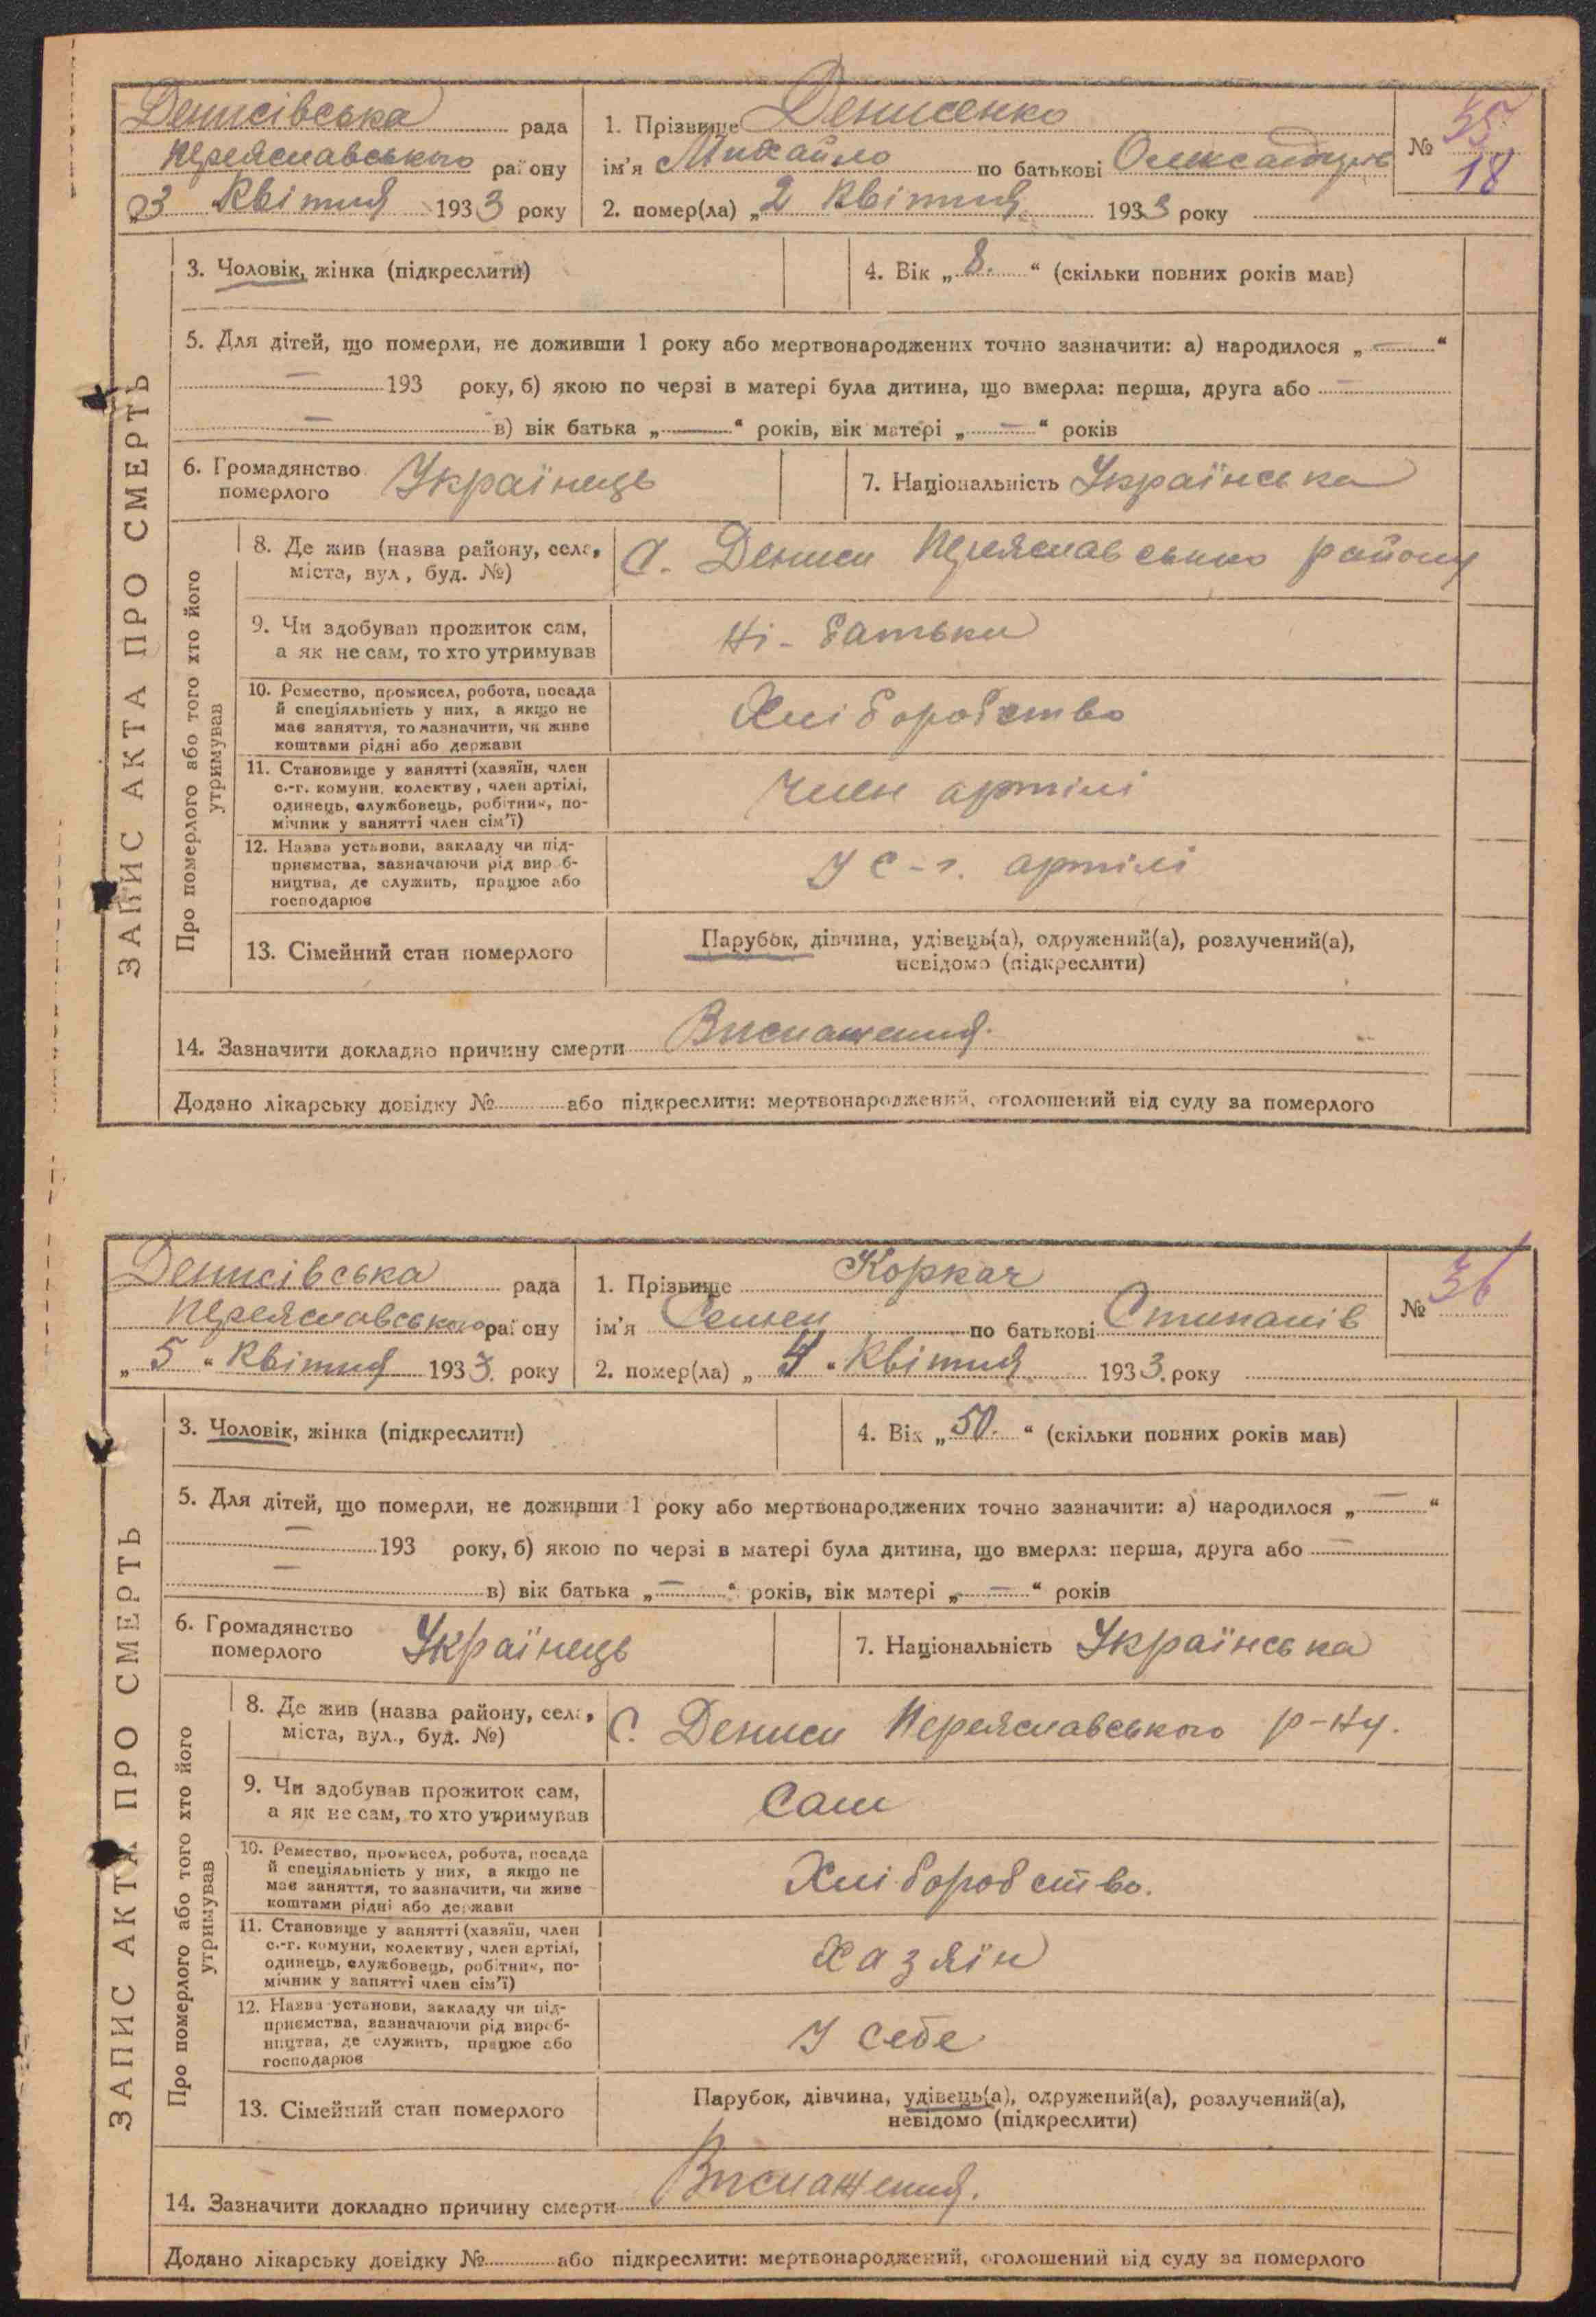 Денисівська рада
Переяславського району
„3 Квітня 1933 року
1. Прізвище Денисенко
ім'я Михайло по батькові Олександрів
2. помер(ла) „2 Квітня 1933 року
№ 35
18
ЗАПИС АКТА ПРО СМЕРТЬ
3. Чоловік, жінка (підкреслити)
4. Вік „8.“ (скільки повних років мав)
5. Для дітей, що померли, не доживши 1 року або мертвонароджених точно зазначити: а) народилося „—“
— 193 року, б) якою по черзі в матері була дитина, що вмерла: перша, друга або —
— в) вік батька „—“ років, вік матері „—“ років
6. Громадянство
померлого Українець
7. Національність Українська
Про померлого або того хто його
утримував
8. Де жив (назва району, села,
міста, вул., буд. №)
С. Дениси Переяславського району
9. Чи здобував прожиток сам,
а як не сам, то хто утримував
Ні - батьки
10. Ремество, промисел, робота, посада
й спеціяльність у них, а якщо не
має заняття, то зазначити, чи живе
коштами рідні або держави
Хліборобство
11. Становище у занятті (хазяїн, член
с.-г. комуни, колективу, член артілі,
одинець, службовець, робітник, по-
мічник у занятті член сім'ї)
Член артілі
12. Назва установи, закладу чи під-
приємства, зазначаючи рід вироб-
ництва, де служить, працює або
господарює
У с-г. артілі
13. Сімейний стан померлого
Парубок, дівчина, удівець(а), одружений(а), розлучений(а),
невідомо (підкреслити)
14. Зазначити докладно причину смерти Виснаження.
Додано лікарську довідку № або підкреслити: мертвонароджений, оголошений від суду за померлого
Денисівська рада
Переяславського району
„5“ Квітня 1933. року
1. Прізвище Коркач
ім'я Семен по батькові Стипанів
2. помер(ла) „4“ Квітня 1933. року
№ 36
ЗАПИС АКТА ПРО СМЕРТЬ
3. Чоловік, жінка (підкреслити)
4. Вік „50.“ (скільки повних років мав)
5. Для дітей, що померли, не доживши 1 року або мертвонароджених точно зазначити: а) народилося „—“
— 193 року, б) якою по черзі в матері була дитина, що вмерла: перша, друга або —
— в) вік батька „—“ років, вік матері „—“ років
6. Громадянство
померлого Українець
7. Національність Українська
Про померлого або того хто його
утримував
8. Де жив (назва району, села,
міста, вул., буд. №)
С. Дениси Переяславського р-ну.
9. Чи здобував прожиток сам,
а як не сам, то хто утримував
Сам
10. Ремество, промисел, робота, посада
й спеціяльність у них, а якщо не
має заняття, то зазначити, чи живе
коштами рідні або держави
Хліборобство.
11. Становище у занятті (хазяїн, член
с.-г. комуни, колективу, член артілі,
одинець, службовець, робітник, по-
мічник у занятті член сім'ї)
Хазяїн
12. Назва установи, закладу чи під-
приємства, зазначаючи рід вироб-
ництва, де служить, працює або
господарює
У себе
13. Сімейний стан померлого
Парубок, дівчина, удівець(а), одружений(а), розлучений(а),
невідомо (підкреслити)
14. Зазначити докладно причину смерти Виснаження.
Додано лікарську довідку № або підкреслити: мертвонароджений, оголошений від суду за померлого